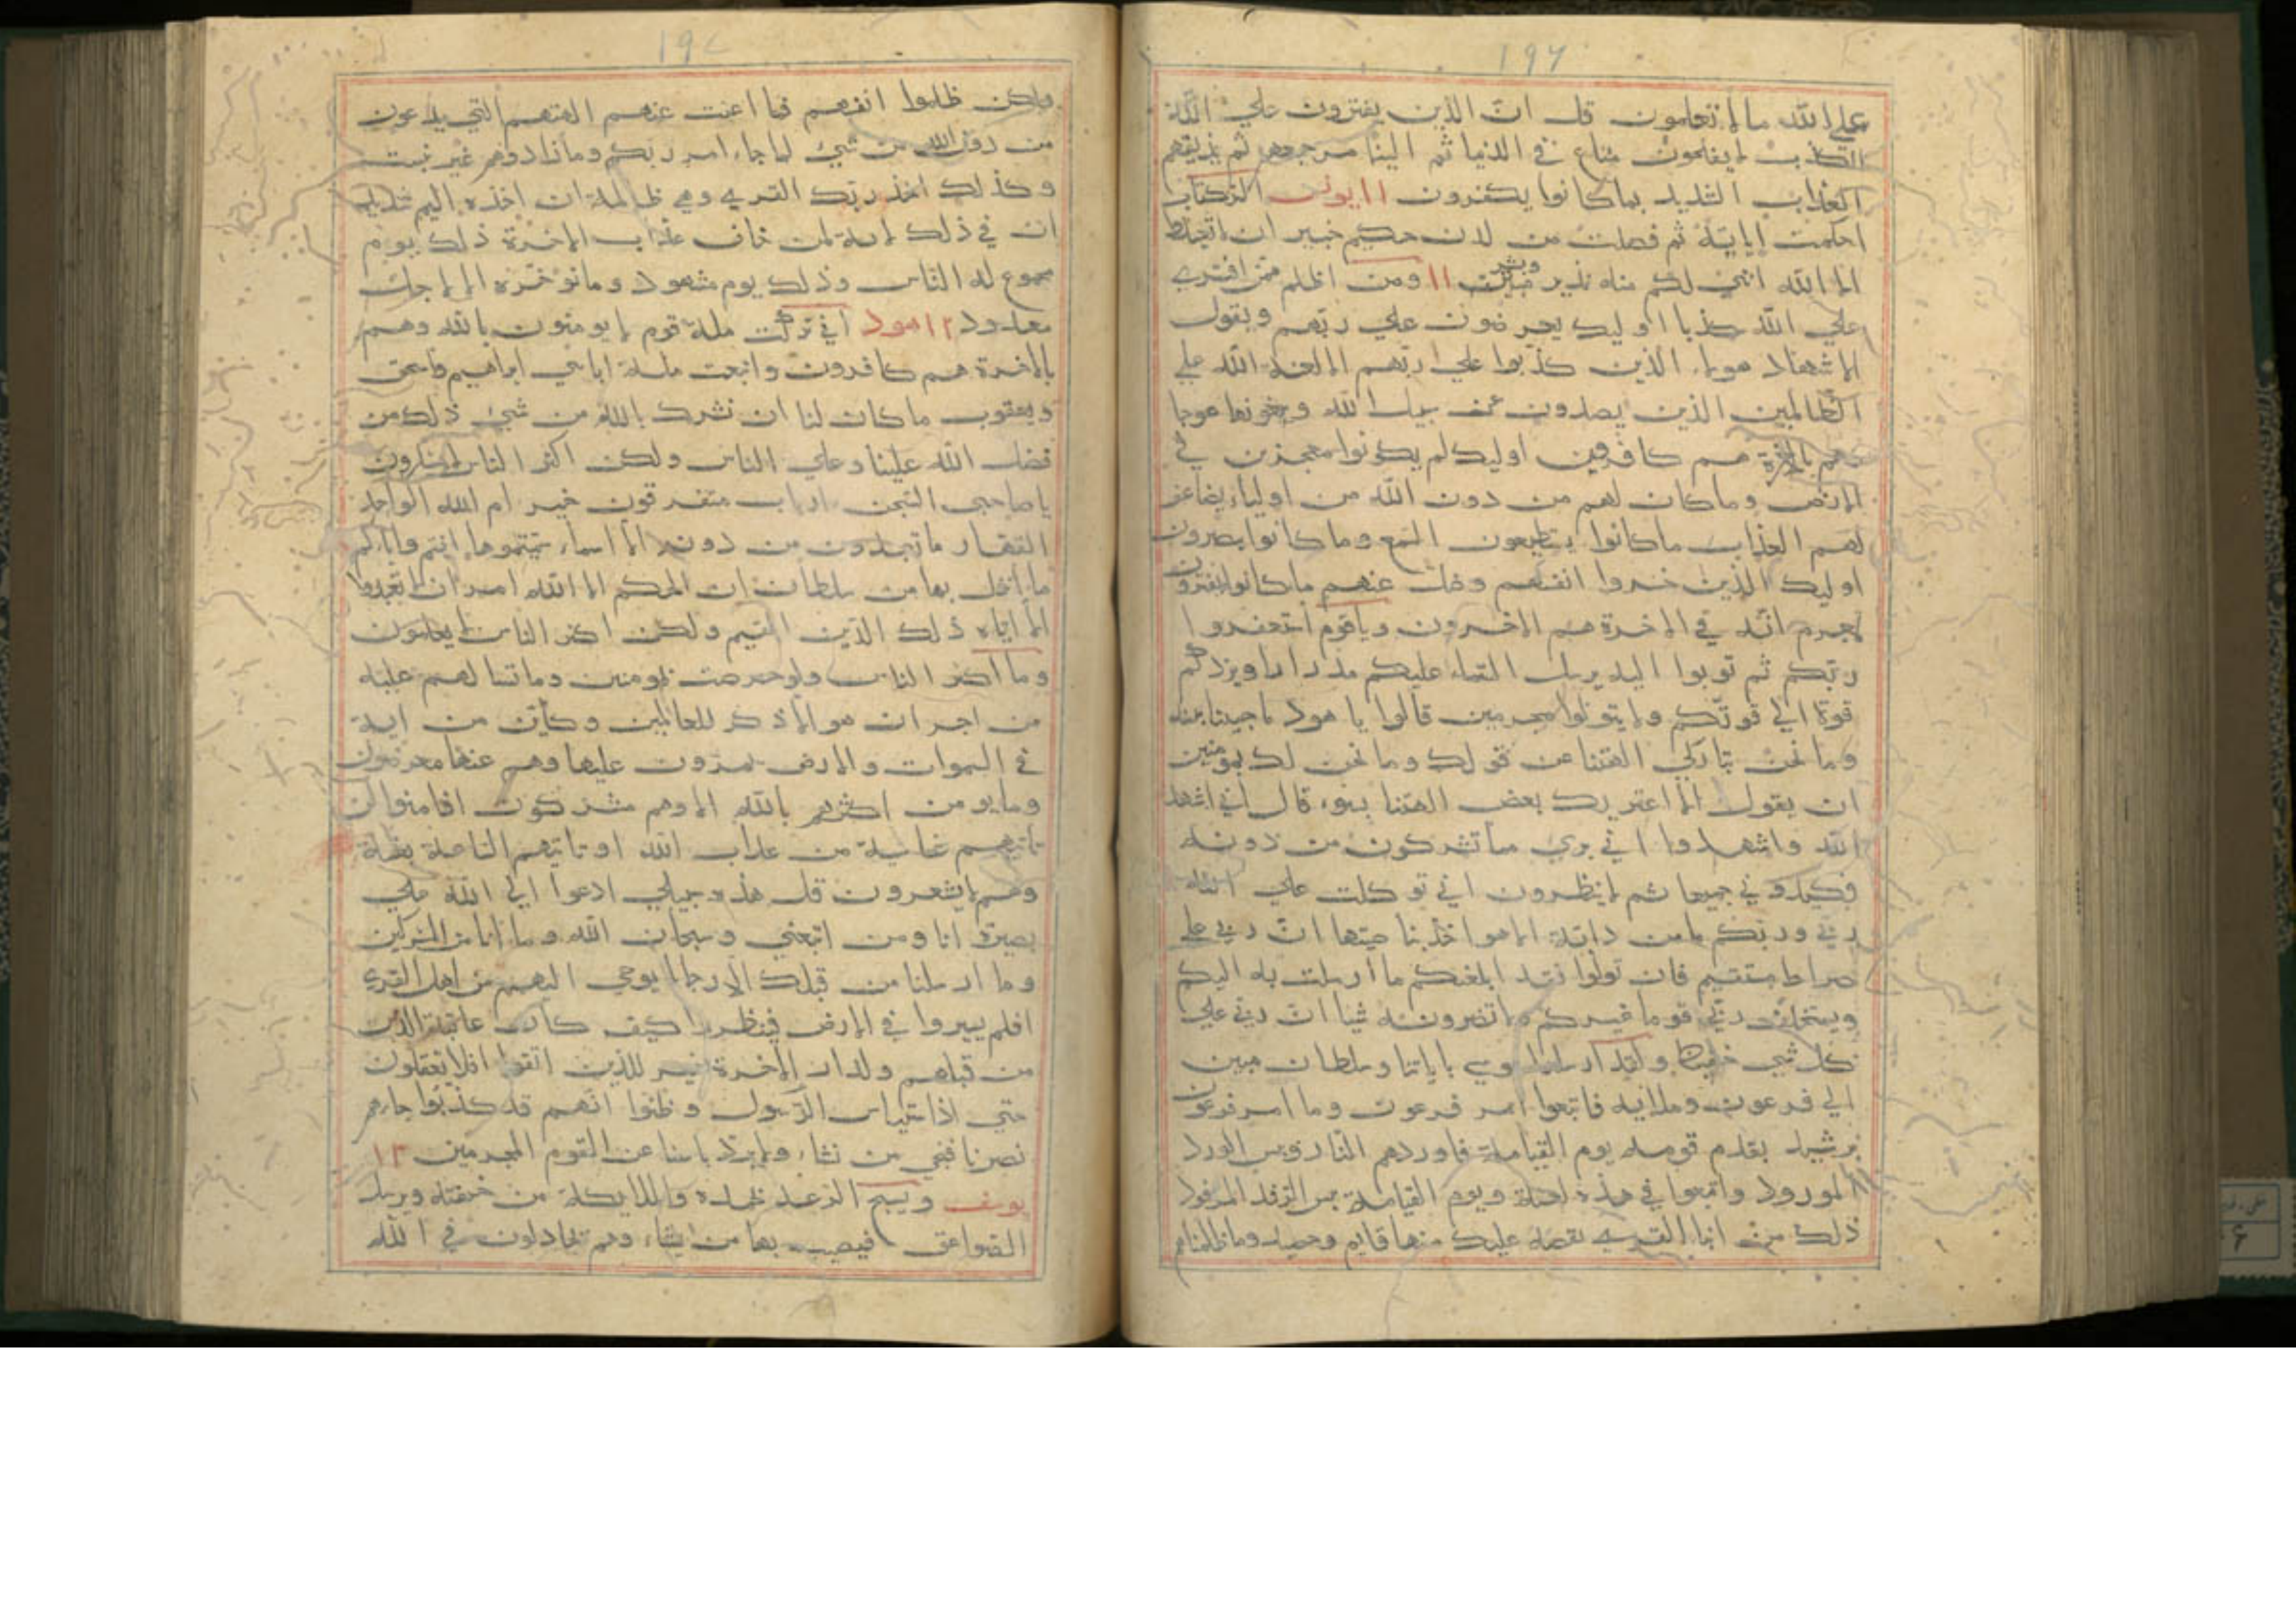 ١٩٦
علي الله ما لا تعلمون قل انّ الذين يفترون علي الله
الكذب لا يفلحون متاع في الدنيا ثم الينا مرجعهم ثم نذيقهم
العذاب الشديد بما كانوا يكفرون ١١ يونس الر كتاب
احكمت اياته ثم فصلت من لدن حكيم خبير ان لا تعبدوا
الا الله انني لكم منه نذير وبشير ١١ ومن اظلم ممن افتري
علي الله كذبا اوليك يعرضون علي ربّهم ويقول
الاشهاد هولاء الذين كذبوا علي ربّهم الا لعنة الله علي
الظالمين الذين يصدون عن سبيل الله ويبغونها عوجا
وهم بالاخرة هم كافرين اوليك لم يكونوا معجزين في
الارض وما كان لهم من دون الله من اولياء يضاعف
لهم العذاب ما كانوا يستطيعون السمع وما كانوا يبصرون
اوليك الذين خسروا انفسهم وضل عنهم ما كانوا يفترون
لاجرم انّه في الاخرة هم الاخسرون وياقوم استغفروا
ربّكم ثم توبوا اليه يرسل السماء عليكم مدرارا ويزدكم
قوة الي قوتّكم ولا يتولوا مجرمين قالوا يا هود ما جيتنا ببينه
وما نحن بتاركي الهتنا عن قولك وما نحن لك بمومنين
ان يقول الا اعتريك بعض الهتنا بسوء قال اني اشهد
الله واشهدوا اني بري مما تشركون من دونه
فكيدوني جميعا ثم لا ينظرون اني توكلت علي الله
ربي وربّكم ما من دابّة الا هو اخذ بناصيتها انّ ربي علي
صراط مستقيم فان تولوا فقد ابلغتكم ما ارسلت به اليكم
ويستخلف ربّي قوما غيركم ولا تضرونه شيا انّ ربي علي
كل شي حفيظ ولقد ارسلنا موسي باياتنا وسلطان مبين
الي فرعون وملايه فاتبعوا امر فرعون وما امر فرعون
برشيد يقدم قومه يوم القيامة فاوردهم النار وبيس الورد
المورود واتبعوا في هذه لعنة ويوم القيامة بيس الرّفد المرفود
ذلك من انباء القري نقصه عليك منها قايم وحصيد وما ظلمناهم
١٩٧
ولكن ظلموا انفسهم فما اغنت عنهم الهتهم التي يدعون
من دون الله من شيء لما جاء امر ربّكم وما زادوهم غير تتبيب
وكذلك اخذ ربّك القري وهي ظالمة ان اخذه اليم شديد
ان في ذلك لاية لمن خاف عذاب الاخرة ذلك يوم
مجموع له الناس وذلك يوم مشهود وما نوخّره الا لاجل
معدود ١٢ هود اني تركت ملة قوم لا يومنون بالله وهم
بالاخرة هم كافرون واتبعت ملة اباءي ابراهيم واسحق
ويعقوب ما كان لنا ان نشرك بالله من شيء ذلك من
فضل الله علينا وعلي الناس ولكن اكثر الناس لا يشكرون
يا صاحبي السّجن ارباب متفرقون خير ام الله الواحد
القهار ما تعبدون من دونه الا اسماء سميتموها انتم واباوكم
ما انزل بها من سلطان ان الحكم الا لله امر ان لا تعبدوا
الا اياه ذلك الدّين القيم ولكن اكثر الناس لا يعلمون
وما اكثر الناس ولو حرصت بمومنين وما تسالهم عليه
من اجر ان هو الا ذكر للعالمين وكاين من اية
في السموات والارض يمرّون عليها وهم عنها معرضون
وما يومن اكثرهم بالله الا وهم مشركون افامنوا ان
تاتيهم غاشية من عذاب الله او تاتيهم الساعة بغتة
وهم لا يشعرون قل هذه سبيلي ادعوا الي الله علي
بصيرة انا ومن اتبعني وسبحان الله وما انا من المشركين
وما ارسلنا من قبلك الا رجالا يوحي اليهم من اهل القري
افلم يسيروا في الارض فينظروا كيف كان عاقبة الذين
من قبلهم ولدار الاخرة خير للذين اتقوا افلا تعقلون
حتي اذا استياس الرّسول وظنوا انهم قد كذبوا جاءهم
نصرنا فنجي من نشاء ولا يردّ باسنا عن القوم المجرمين ١٢
يوسف ويسبح الرعد بحمده والملايكة من خيفته ويرسل
الصواعق فيصيب بها من يشاء وهم يجادلون في الله